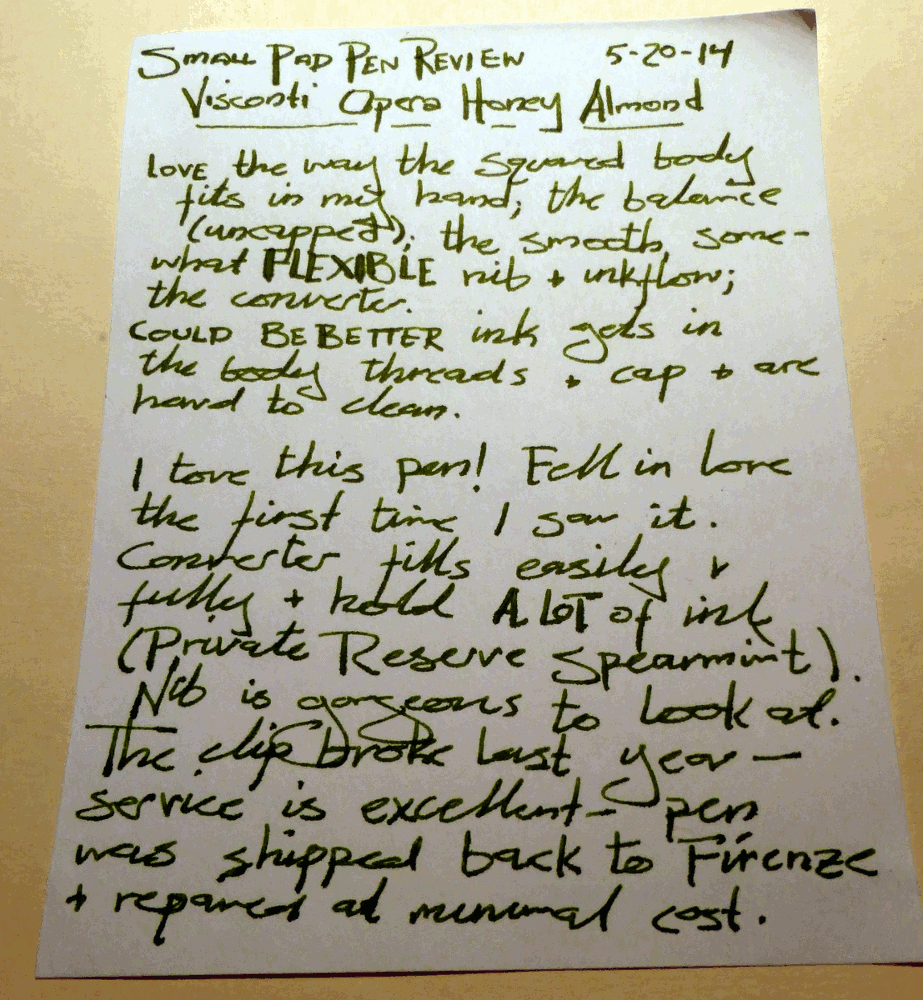 SMALL PAD PEN REVIEW 5-20-14
Visconti Opera Honey Almond
LOVE the way the squared body
fits in my hand; the balance
(uncapped); the smooth, some-
what FLEXIBLE nib + inkflow;
the converter.
COULD BE BETTER ink gets in
the body threads + cap + are
hard to clean.
I love this pen! Fell in love
the first time I saw it.
Converter fills easily +
fully + hold A LOT of ink
(Private Reserve Spearmint).
Nib is gorgeous to look at.
The clip broke last year —
service is excellent - pen
was shipped back to Firenze
+ repaired at minimal cost.